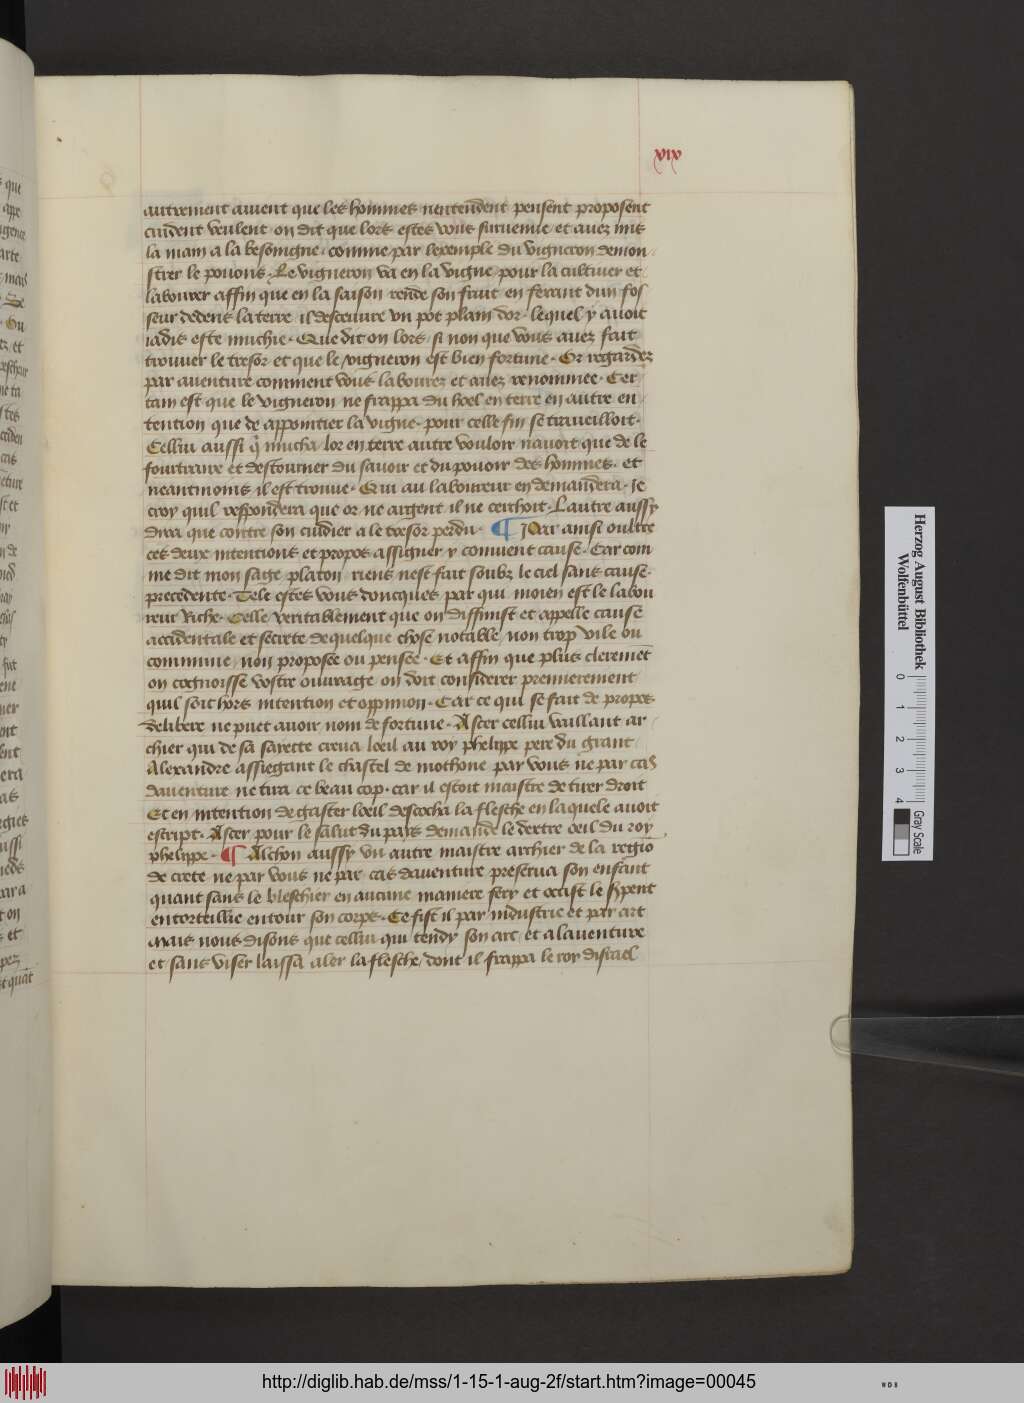 xix
autrement auient que les hommes nentendent pensent proposent
cuident veulent on dit que lors estes vous suruenue et auez mis
la main a la besoingne comme par lexemple du vigneron demon
strer le pouons. Le vigneron va en la vigne pour la cultiuer et
labourer affin que en la saison rende son fruit en ferant dun fos
seur dedens la terre il descueuure vn pot plain dor. lequel y auoit
iadis este muchie. Que dit on lors, si non que vous auez fait
trouuer le tresor et que le vigneron est bien fortune. Or regardez
par auenture comment vous labourez et auez renommee. Cer
tain est que le vigneron ne frappa du hoel en terre en autre en
tention que de appointier la vigne. pour celle fin se traueilloit.
Cellui aussi q̃ mucha lor en terre autre vouloir nauoit que de le
fourtraire et destourner du sauoir et du pouoir des hommes. et
neantmoins il est trouue. Qui au laboureur en demandera. Je
croy quil respondera que or ne argent il ne cerchoit. Lautre aussy
dira que contre son cuidier a le tresor perdu. ¶ Par ainsi oultre
ces deux intentions et propos assigner y conuient cause. Car com
me dit mon sage platon riens nest fait soubz le ciel sans cause
precedente. Tele estes vous doncques par qui moien est le labou
reur Riche. Celle veritablement que on diffinist et appelle cause
accidentale et secrete de quelque chose notable, non trop vile ou
commune, non proposee ou pensee. Et affin que plus cleremẽt
on cognoisse vostre ouurage on doit considerer premierement
quil soit hors intention et oppinion. Car ce qui se fait de propos
delibere ne puet auoir nom de fortune. Aster cellui vaillant ar
chier qui de sa sarette creua loeil au roy phelippe pere du grant
Alexandre assiegant le chastel de mothone par vous ne par cas
dauenture ne tira ce beau cop. car il estoit maistre de tirer droit
Et en intention de gaster loeil descocha la flesche en laquele auoit
escript. Aster pour le salut du pais demande le dextre oeil du roy
phelippe. ¶ Alchon aussy vn autre maistre archier de la regiõ
de crete ne par vous ne par cas dauenture preserua son enfant
quant sans le bleschier en aucune maniere fery et occist le serpent
entorteillie entour son corps. Ce fist il par industrie et par art
Mais nous disons que cellui qui tendy son arc et a lauenture
et sans viser laissa aler la flesche, dont il frappa le roy disrael
Herzog August Bibliothek
Wolfenbüttel
0 1 2 3 4
Gray Scale
http://diglib.hab.de/mss/1-15-1-aug-2f/start.htm?image=00045